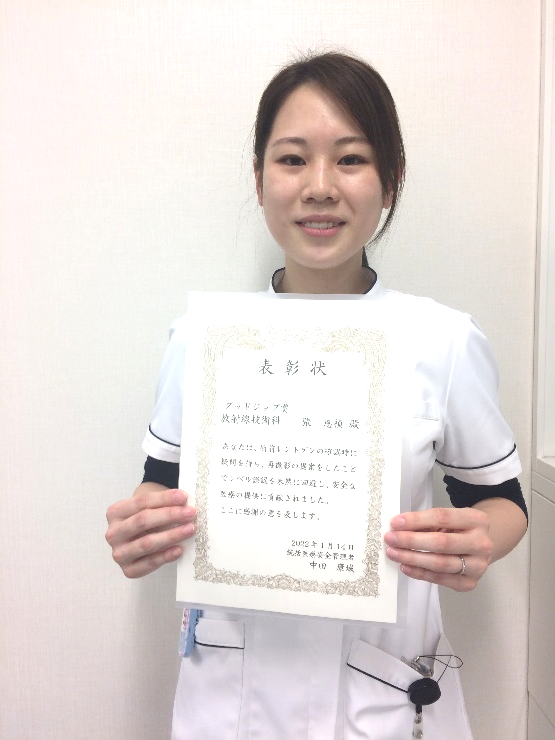 表彰状
グッドジョブ賞
放射線技術科 殿
あなたは、術前レントゲンの確認時に
疑問を持ち、再撮影の提案をしたこと
でレベル誤認を未然に回避し、安全な
医療の提供に貢献されました。
ここに感謝の意を表します。
2022年1月14日
統括医療安全管理者
中田